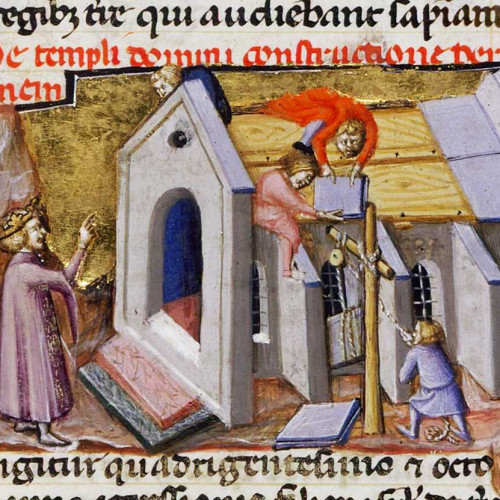 egibz tre qui audiebant sapiam
De templi domini constructione
nem
ngitur quadrigentesimo & octo